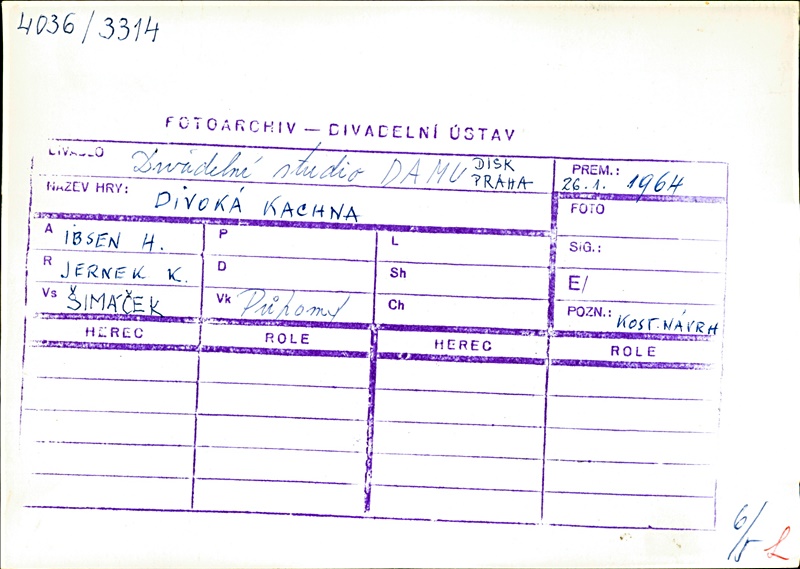 4036/3314
FOTOARCHIV — DIVADELNÍ ÚSTAV
DIVADLO Divadelní studio DAMU DISK PRAHA
PREM.: 26.1. 1964
NÁZEV HRY: DIVOKÁ KACHNA
FOTO
A IBSEN H. P L SIG.:
R JERNEK K. D Sh E/
Vs ŠIMÁČEK Vk Ch POZN.: KOST. NÁVRH
HEREC ROLE HEREC ROLE